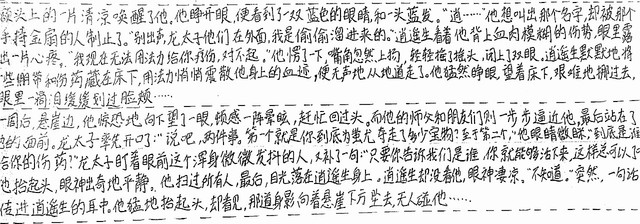 额头上的一片清凉唤醒了他,他睁开眼,便看到了一双蓝色的眼睛和一头蓝发。"逍……"他想叫出那个名字,却被那个
手持金扇的人制止了。"别出声,龙太子他们在外面,我是偷偷溜进来的。"逍遥生看着他背上血肉模糊的伤势,眼里露
出一片心疼。"我现在无法用法力给你疗伤,对不起。"他愣了一下,嘴角忽然上扬,轻轻摇了摇头,闭上了双眼。逍遥生默默地将
些绷带和伤药藏在床下,用法力悄悄震散他身上的血迹,便无声地从地道走了。他猛然睁眼,望着床下,艰难地挪过去,
眼里一滴泪缓缓划过脸颊……
一周后,悬崖边,他惊恐地向下望了一眼,顿感一阵晕眩,赶忙回过头。而他的师父和朋友们则一步步逼近他,最后站在了
他的面前。龙太子率先开口了:"说吧,两件事。第一个就是你到底为蚩尤夺走了多少宝物?至于第二个,"他眼睛微眯,"到底是谁
给你的伤药?"龙太子盯着眼前这个浑身微微发抖的人,又补了一句:"只要你告诉我们是谁,你就能够活下来,这样总可以了
他抬起头,眼神出奇地平静。他扫过所有人,最后,目光落在逍遥生身上。逍遥生却没看他,眼神凄凉。"不知道。"突然,一句话
传进逍遥生的耳中。他猛地抬起头,却看见,那道身影向着悬崖下方坠去,无人碰他……